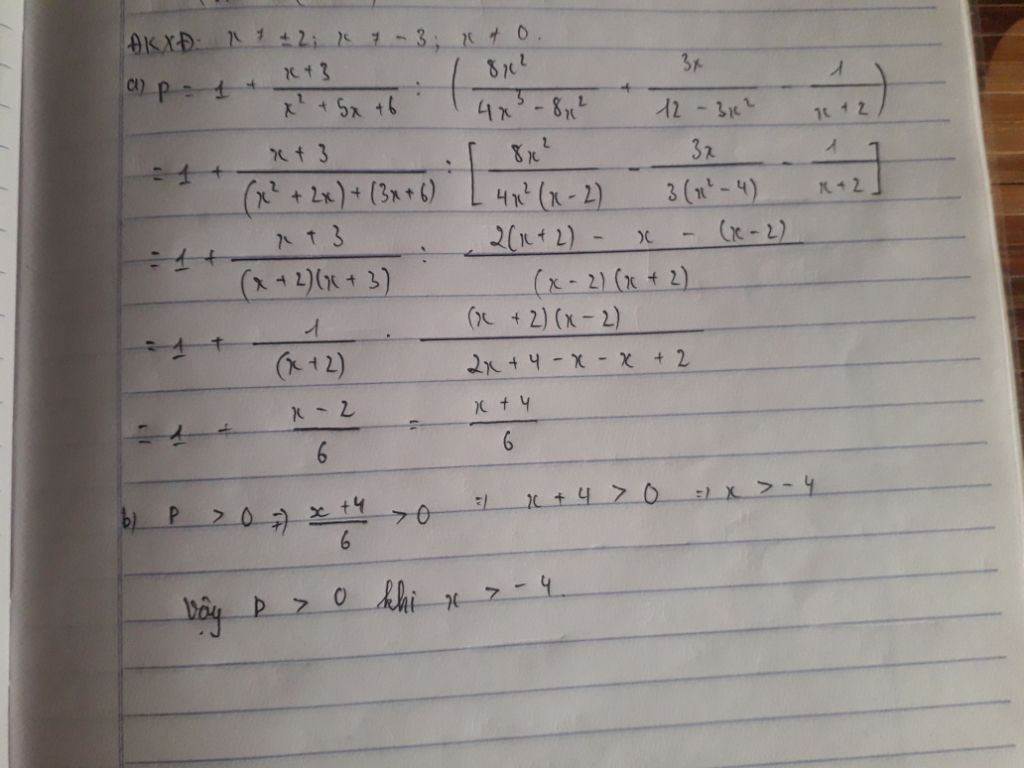 ĐKXĐ: x ≠ ±2; x ≠ -3; x ≠ 0.
a) P = 1 + \frac{x+3}{x² + 5x + 6} : ( \frac{8x²}{4x³ - 8x²} + \frac{3x}{12 - 3x²} - \frac{1}{x+2} )
= 1 + \frac{x+3}{(x² + 2x) + (3x+6)} : [ \frac{8x²}{4x²(x-2)} - \frac{3x}{3(x²-4)} - \frac{1}{x+2} ]
= 1 + \frac{x+3}{(x+2)(x+3)} : \frac{2(x+2) - x - (x-2)}{(x-2)(x+2)}
= 1 + \frac{1}{(x+2)} . \frac{(x+2)(x-2)}{2x+4-x-x+2}
= 1 + \frac{x-2}{6} = \frac{x+4}{6}
b) P > 0 => \frac{x+4}{6} > 0 => x + 4 > 0 => x > -4
Vậy P > 0 khi x > -4.